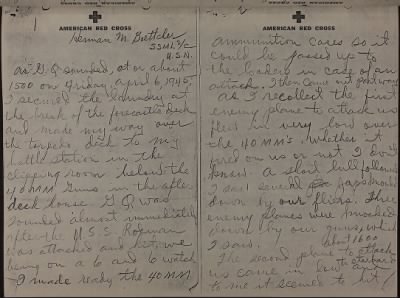 1
AMERICAN RED CROSS
Herman M.
SSML 3/c
U.S.N.
As G.Q. sounded, at or about
1500 on Friday, April 6, 1945,
I secured the laundry at
the break of the forecastle deck
and made my way over
the torpedo deck to my
battle station in the
clipping room below the
40 MM guns in the after
deck house. G.Q. was
sounded almost immediately
after the U.S.S. Rodman
was attacked and hit, we
being on a 6 and 6 watch
I made ready the 40 MM
AMERICAN RED CROSS
ammunition cases so it
could be passed up to
the loaders in case of an
attack. I then came out
as I recollect the first
enemy plane to attack us
flew in very low over
the 40 MM's. Whether it
fired on us or not I don't
know. A short lull followed
I saw several Japs knocked
down by our fliers. Three
enemy planes were knocked
down by our guns, which
I saw. about 1600
The second plane to attack
us came in low and
to me it seemed to hit